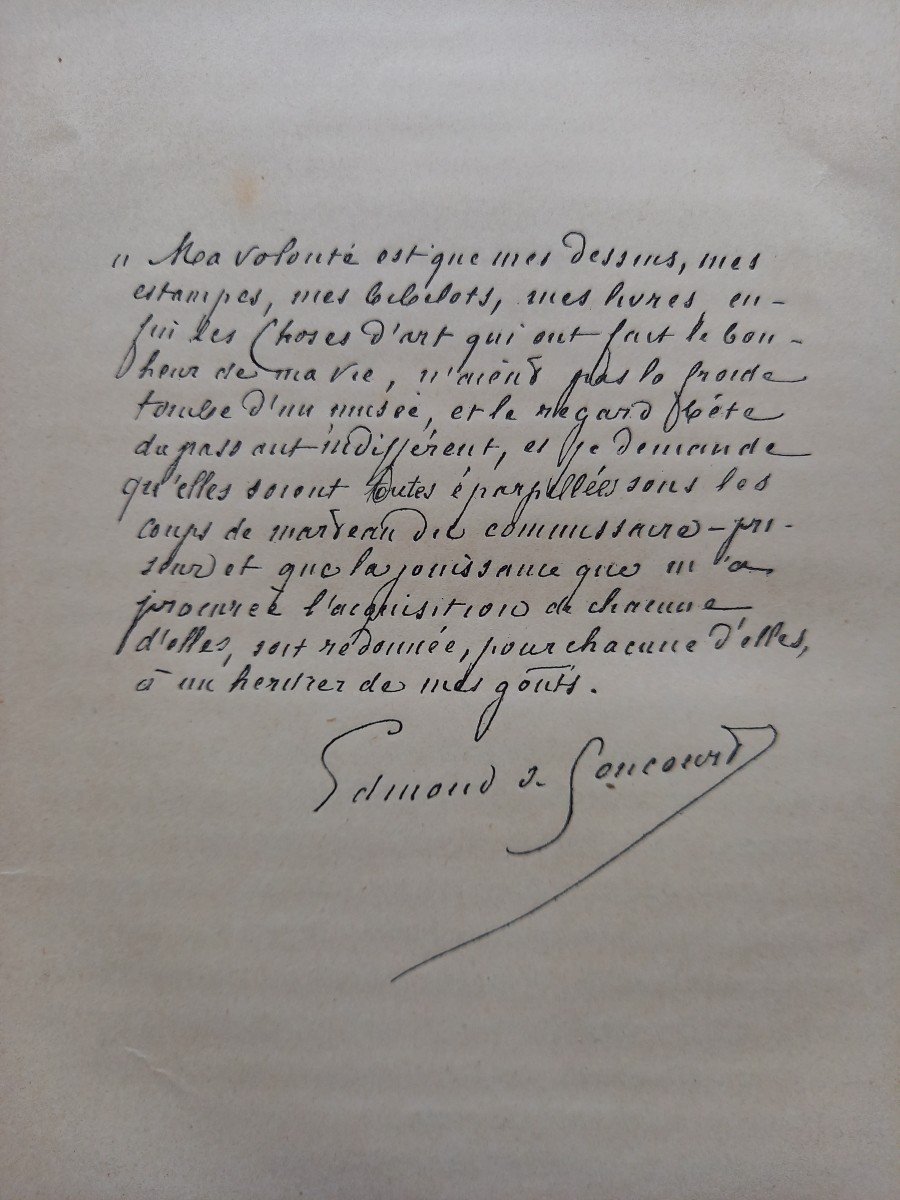 " Ma volonté est que mes dessins, mes
estampes, mes bibelots, mes livres, en-
fin les Choses d'art qui ont fait le bon-
heur de ma vie, n'aient pas la froide
tombe d'un musée, et le regard bête
du passant indifférent, et je demande
qu'elles soient toutes éparpillées sous les
coups de marteau du commissaire-pri-
seur et que la jouissance que m'a
procurée l'acquisition de chacune
d'elles, soit redonnée, pour chacune d'elles,
à un héritier de mes goûts.
Edmond de Goncourt